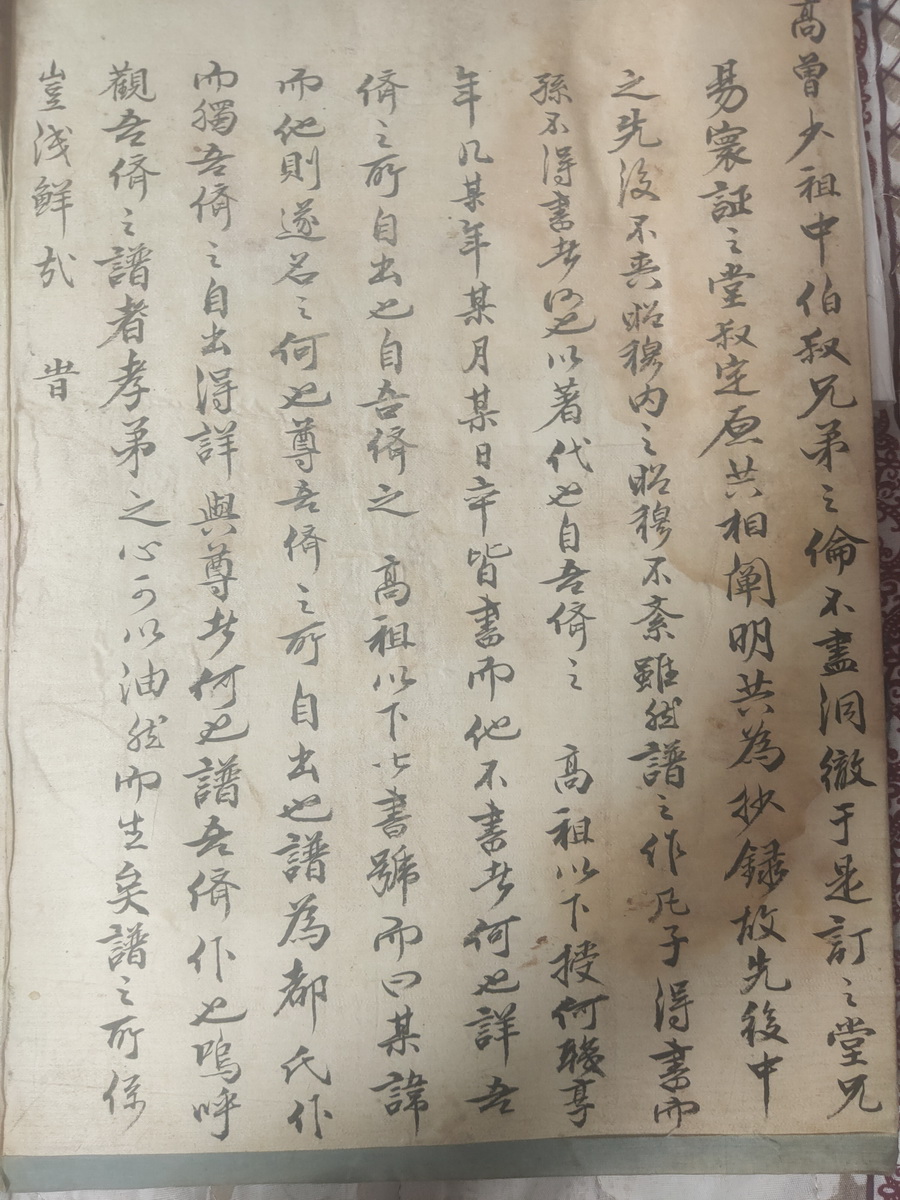 高曾夕祖中伯叔兄弟之倫不盡洞徹于是訂之堂兄
易寰証之堂叔定原共相闡明共為抄錄故先後中
之先後不爽昭穆內之昭穆不紊雖然譜之作凡子得書而
孫不得書者何也以著代也自吾儕之 高祖以下授何職享
年凡某年某月某日卒皆書而他不書者何也詳吾
儕之所自出也自吾儕之 高祖以下皆書號而曰某諱
而他則遂名之何也尊吾儕之所自出也譜為都氏作
而獨吾儕之自出得詳與尊者何也譜吾儕作也嗚呼
觀吾儕之譜者孝弟之心可以油然而生矣譜之所係
豈淺鮮哉 旹